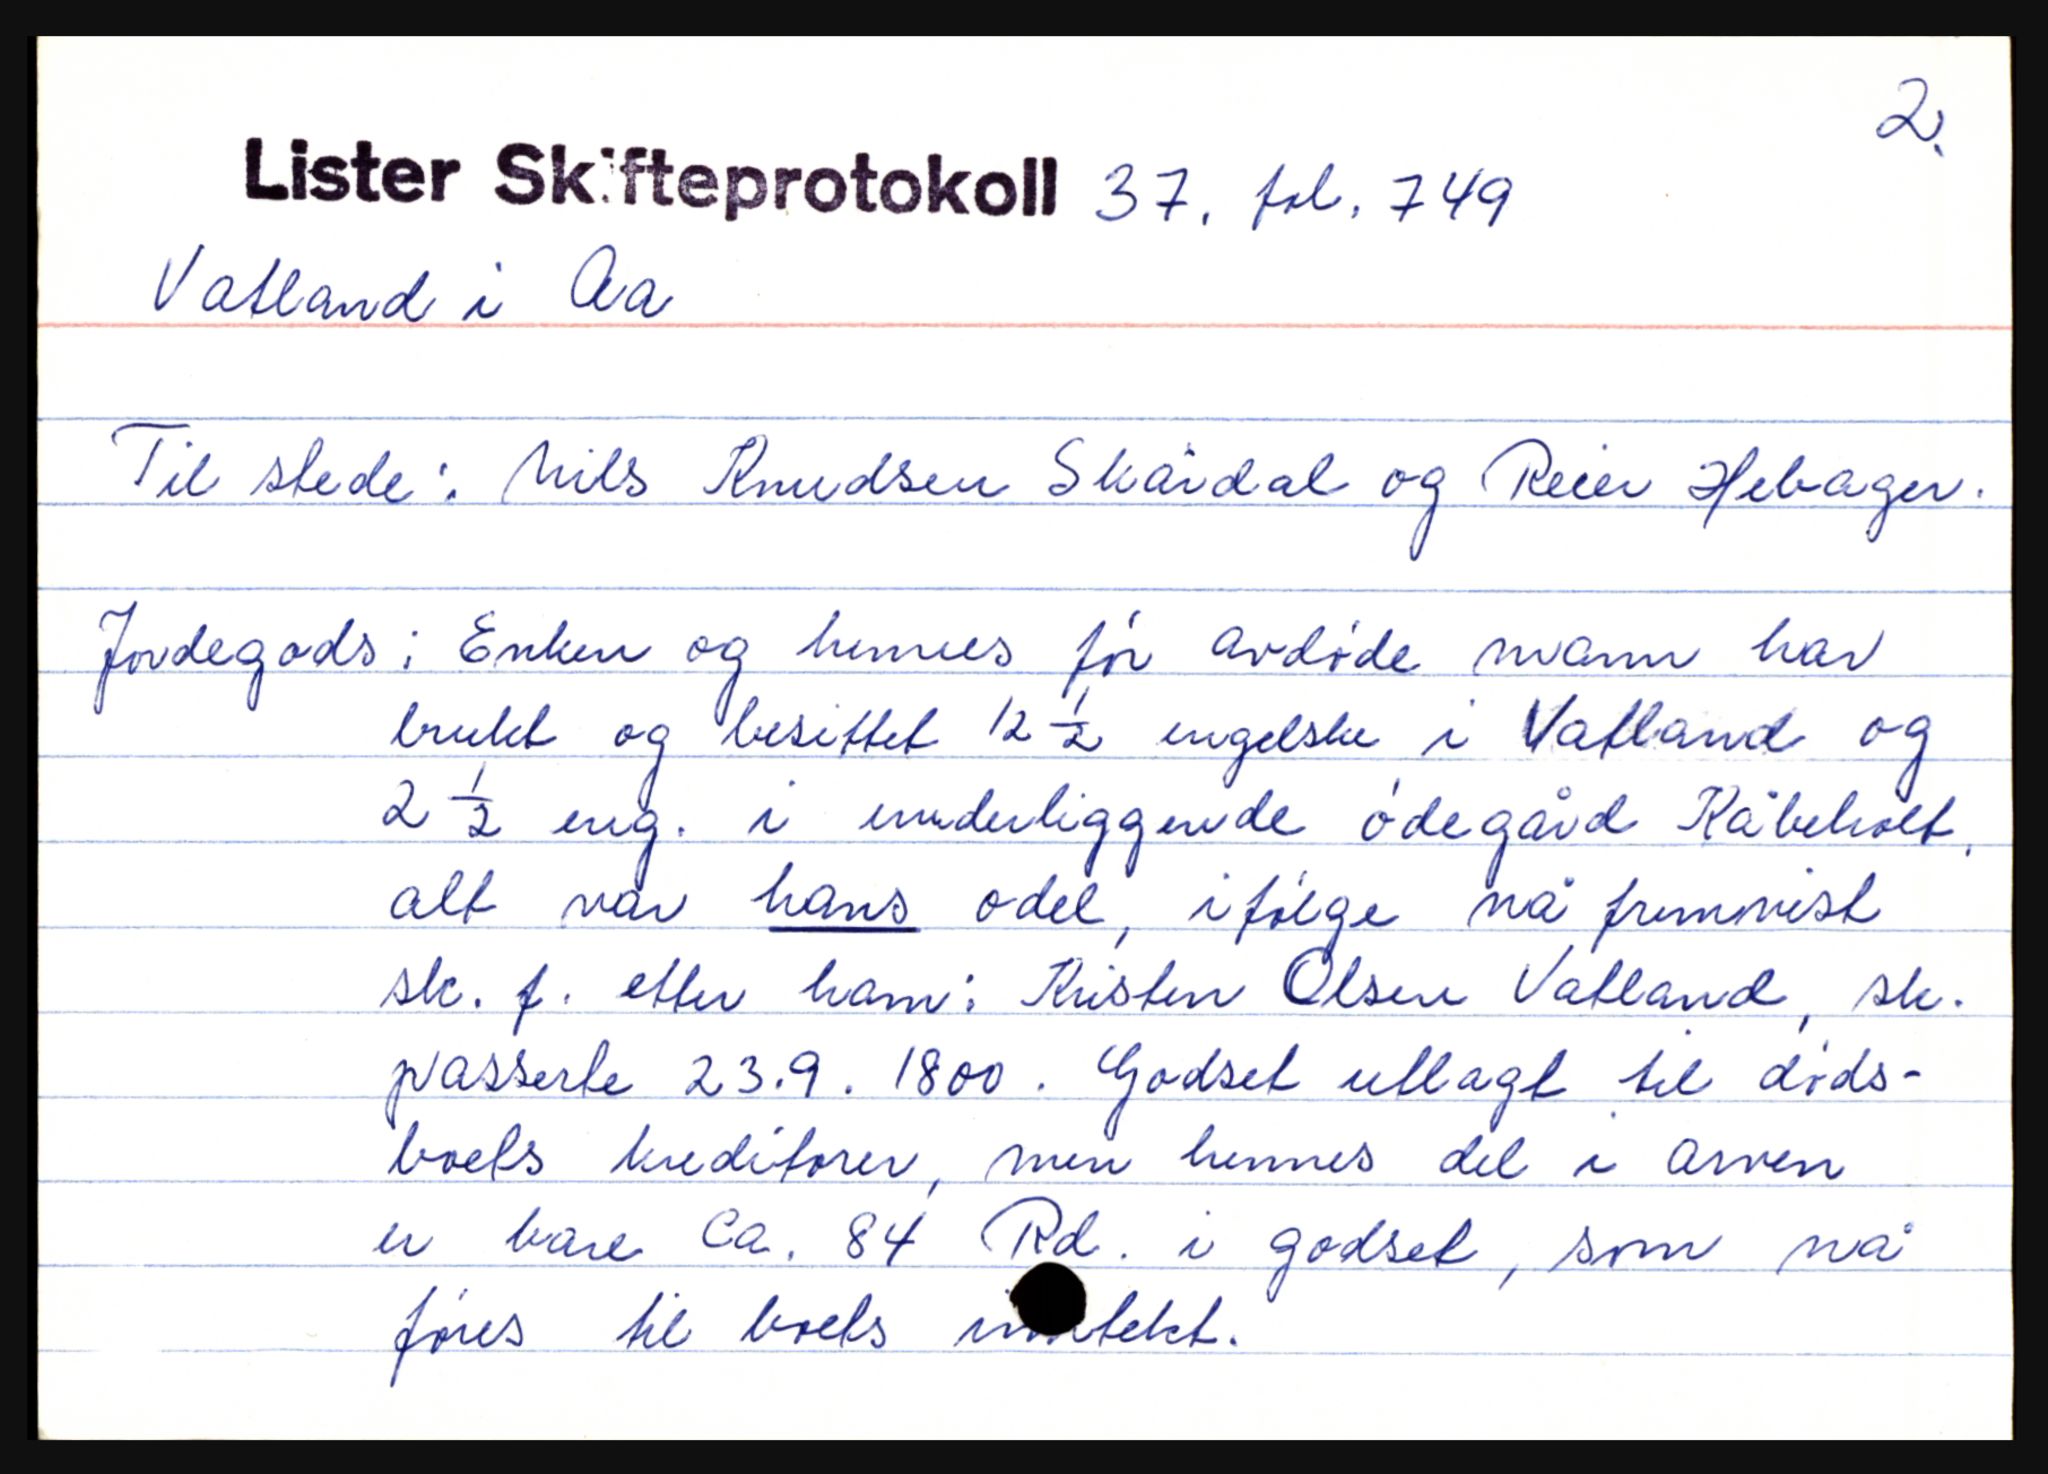 2.
Lister Skifteprotokoll 37. fol. 749
Vatland i Aa
Til stede: Nils Knudsen Skårdal og Reier Hebager.
Jordegods: Enken og hennes før avdøde mann har
brukt og besittet 12 1/2 engelske i Vatland og
2 1/2 eng. i underliggende ødegård Kåbeholt,
alt var hans odel, ifølge nå fremvist
sk. f. etter ham: Kristen Olsen Vatland, sk.
passerte 23.9. 1800. Godset utlagt til døds-
boets kreditorer, men hennes del i arven
er bare ca. 84 Rd. i godset, som nå
føres til boets inntekt.